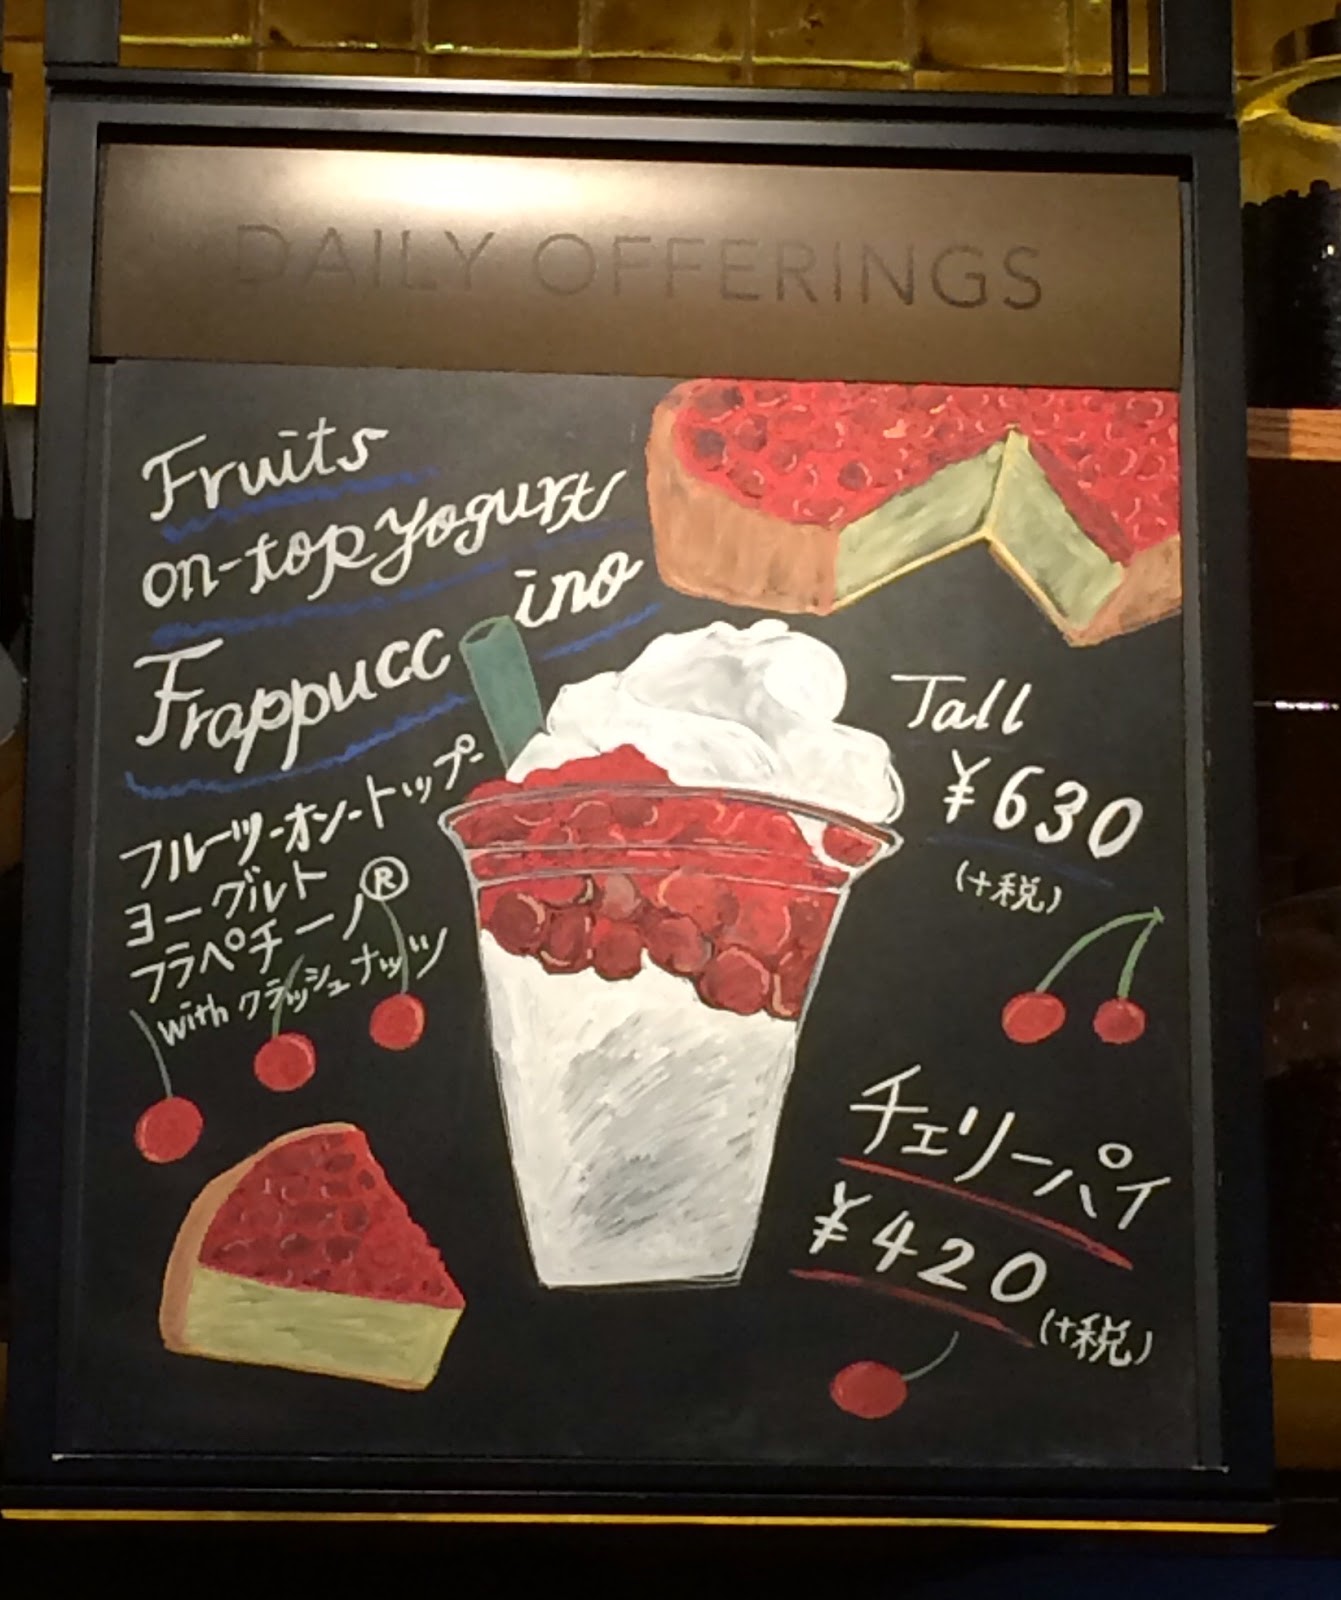 DAILY OFFERINGS
Fruits
on-top yogurt
Frappuccino
フルーツ-オン-トップ-
ヨーグルト
フラペチーノ®
with クラッシュナッツ
Tall
¥630
(+税)
チェリーパイ
¥420
(+税)